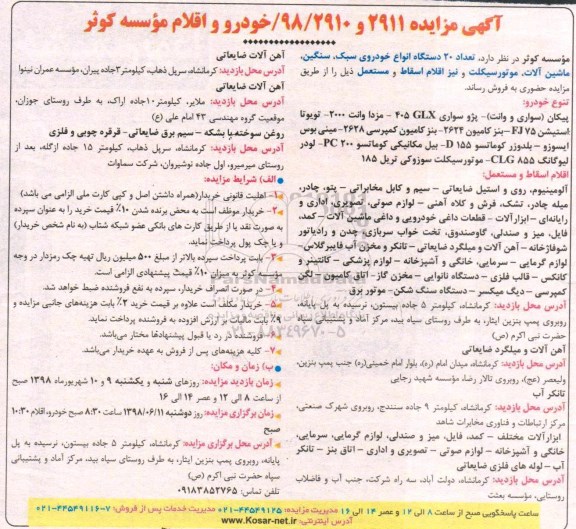 آگهی مزایده ۲۹۱۱ و ۹۸/۲۹۱۰/خودرو و اقلام مؤسسه کوثر
مؤسسه کوثر در نظر دارد، تعداد ۲۰ دستگاه انواع خودروی سبک، سنگین،
ماشین آلات، موتورسیکلت و نیز اقلام اسقاط و مستعمل ذیل را از طریق
مزایده حضوری به فروش رساند.
تنوع خودرو:
پیکان (سواری و وانت)- پژو سواری GLX ۴۰۵ - مزدا وانت ۲۰۰۰- تویوتا
استیشن FJ ۷۵-بنز کامیون ۲۶۲۴- بنز کامیون کمپرسی ۲۶۲۸-مینی بوس
ایسوزو - بلدوزر کوماتسو D ۱۵۵- بیل مکانیکی کوماتسو PC ۲۰۰- لودر
لیوگانگ CLG ۸۵۵- موتورسیکلت سوزوکی تریل ۱۸۵
اقلام اسقاط و مستعمل:
آلومینیوم، روی و استیل ضایعاتی - سیم و کابل مخابراتی - پتو، چادر،
میله چادر، تشک، فرش و کلاه آهنی - لوازم صوتی، تصویری، اداری و
رایانه‌ای - ابزارآلات - قطعات داغی خودرویی و داغی ماشین آلات - کمد،
فایل، میز و صندلی، گاوصندوق، تخت خواب سربازی، چدن و رادیاتور
شوفاژخانه - آهن آلات و میلگرد ضایعاتی - تانکر و مخزن آب فایبرگلاس-
لوازم گرمایی - سرمایی، خانگی و آشپزخانه - لوازم پزشکی - کانتینر و
کانکس - قالب فلزی - دستگاه نانوایی - مخزن گاز- اتاق کامیون - لگن
کمپرسی - دیگ میکسر - دستگاه سنگ شکن- موتور برق
آدرس محل بازدید: کرمانشاه، کیلومتر ۵ جاده بیستون، نرسیده به پل پایانه،
روبروی پمپ بنزین ایثار، به طرف روستای سیاه بید، مرکز آماد و پشتیبانی سپاه
حضرت نبی اکرم (ص)
آهن آلات و میلگرد ضایعاتی
آدرس محل بازدید: کرمانشاه، میدان امام (ره)، بلوار امام خمینی(ره) جنب پمپ بنزین،
ولیعصر (عج)، روبروی تالار رضا، مؤسسه شهید رجایی
تانکر آب
آدرس محل بازدید: کرمانشاه، کیلومتر ۹ جاده سنندج، روبروی شهرک صنعتی،
مرکز ارتباطات و فناوری مخابرات شاهد
ابزارآلات مختلف - کمد، فایل، میز و صندلی، لوازم گرمایی، سرمایی،
خانگی و آشپزخانه - لوازم صوتی - تصویری و اداری - اتاق بنز - تانکر
آب - لوله های فلزی ضایعاتی
آدرس محل بازدید: کرمانشاه، دولت آباد، سه راه شرکت، جنب آب و فاضلاب
روستایی، مؤسسه بعثت
آهن آلات ضایعاتی
آدرس محل بازدید: کرمانشاه، سرپل ذهاب، کیلومتر۳جاده پیران، مؤسسه عمران نینوا
آهن آلات ضایعاتی
آدرس محل بازدید: ملایر، کیلومتر۱۰جاده اراک، به طرف روستای جوزان،
موقعیت گروه مهندسی ۴۳ امام علی (ع)
روغن سوخته با بشکه - سیم برق ضایعاتی- قرقره چوبی و فلزی
آدرس محل بازدید: کرمانشاه، سرپل ذهاب، کیلومتر ۱۵ جاده ازگله، بعد از
روستای میرمیرو، اول جاده نوشیروان، شرکت سماوات
الف) شرایط مزایده:
۱- اهلیت قانونی خریدار(همراه داشتن اصل و کپی کارت ملی الزامی می باشد)
۲- خریدار موظف است به محض برنده شدن ۱۰٪ قیمت خرید را به عنوان سپرده
به صورت نقد یا از طریق کارت های بانکی عضو شبکه شتاب (به نام شخص خریدار)
و یا چک پول پرداخت نماید.
۳- بابت پرداخت سپرده بالاتر از مبلغ ۵۰۰ میلیون ریال تهیه چک رمزدار در وجه
مؤسسه کوثر به میزان ۱۰٪ قیمت پیشنهادی الزامی است.
۴- در صورت انصراف خریدار، سپرده به نفع فروشنده ضبط خواهد شد.
۵- خریدار مکلف است علاوه بر قیمت خرید ۲٪ بابت هزینه‌های جانبی مزایده و
۹٪ بابت مالیات بر ارزش افزوده به فروشنده پرداخت نماید.
۶- فروشنده در رد یا قبول پیشنهادها مختار می‌باشد.
۷- کلیه هزینه‌های پس از فروش به عهده خریدار می‌باشد.
ب) زمان و مکان:
زمان بازدید مزایده: روزهای شنبه و یکشنبه ۹ و ۱۰ شهریورماه ۱۳۹۸ صبح
از ساعت ۸ الی ۱۲ و عصر ۱۴ الی ۱۶
زمان برگزاری مزایده: روز دوشنبه ۱۳۹۸/۰۶/۱۱ ساعت ۸:۳۰ صبح خودرو، اقلام ۱۰:۳۰
صبح
آدرس محل برگزاری مزایده: کرمانشاه، کیلومتر ۵ جاده بیستون، نرسیده به پل
پایانه، روبروی پمپ بنزین ایثار، به طرف روستای سیاه بید، مرکز آماد و پشتیبانی
سپاه حضرت نبی اکرم (ص)
تلفن تماس: ۰۹۱۸۳۸۵۲۷۶۵
ساعت پاسخگویی صبح از ساعت ۸ الی ۱۲ و عصر ۱۴ الی ۱۶ مدیریت مزایده: ۴۴۵۴۹۱۲۵-۰۲۱ مدیریت خدمات پس از فروش: ۷-۴۴۵۴۹۱۱۶-۰۲۱
آدرس اینترنتی: www.Kosar-net.ir